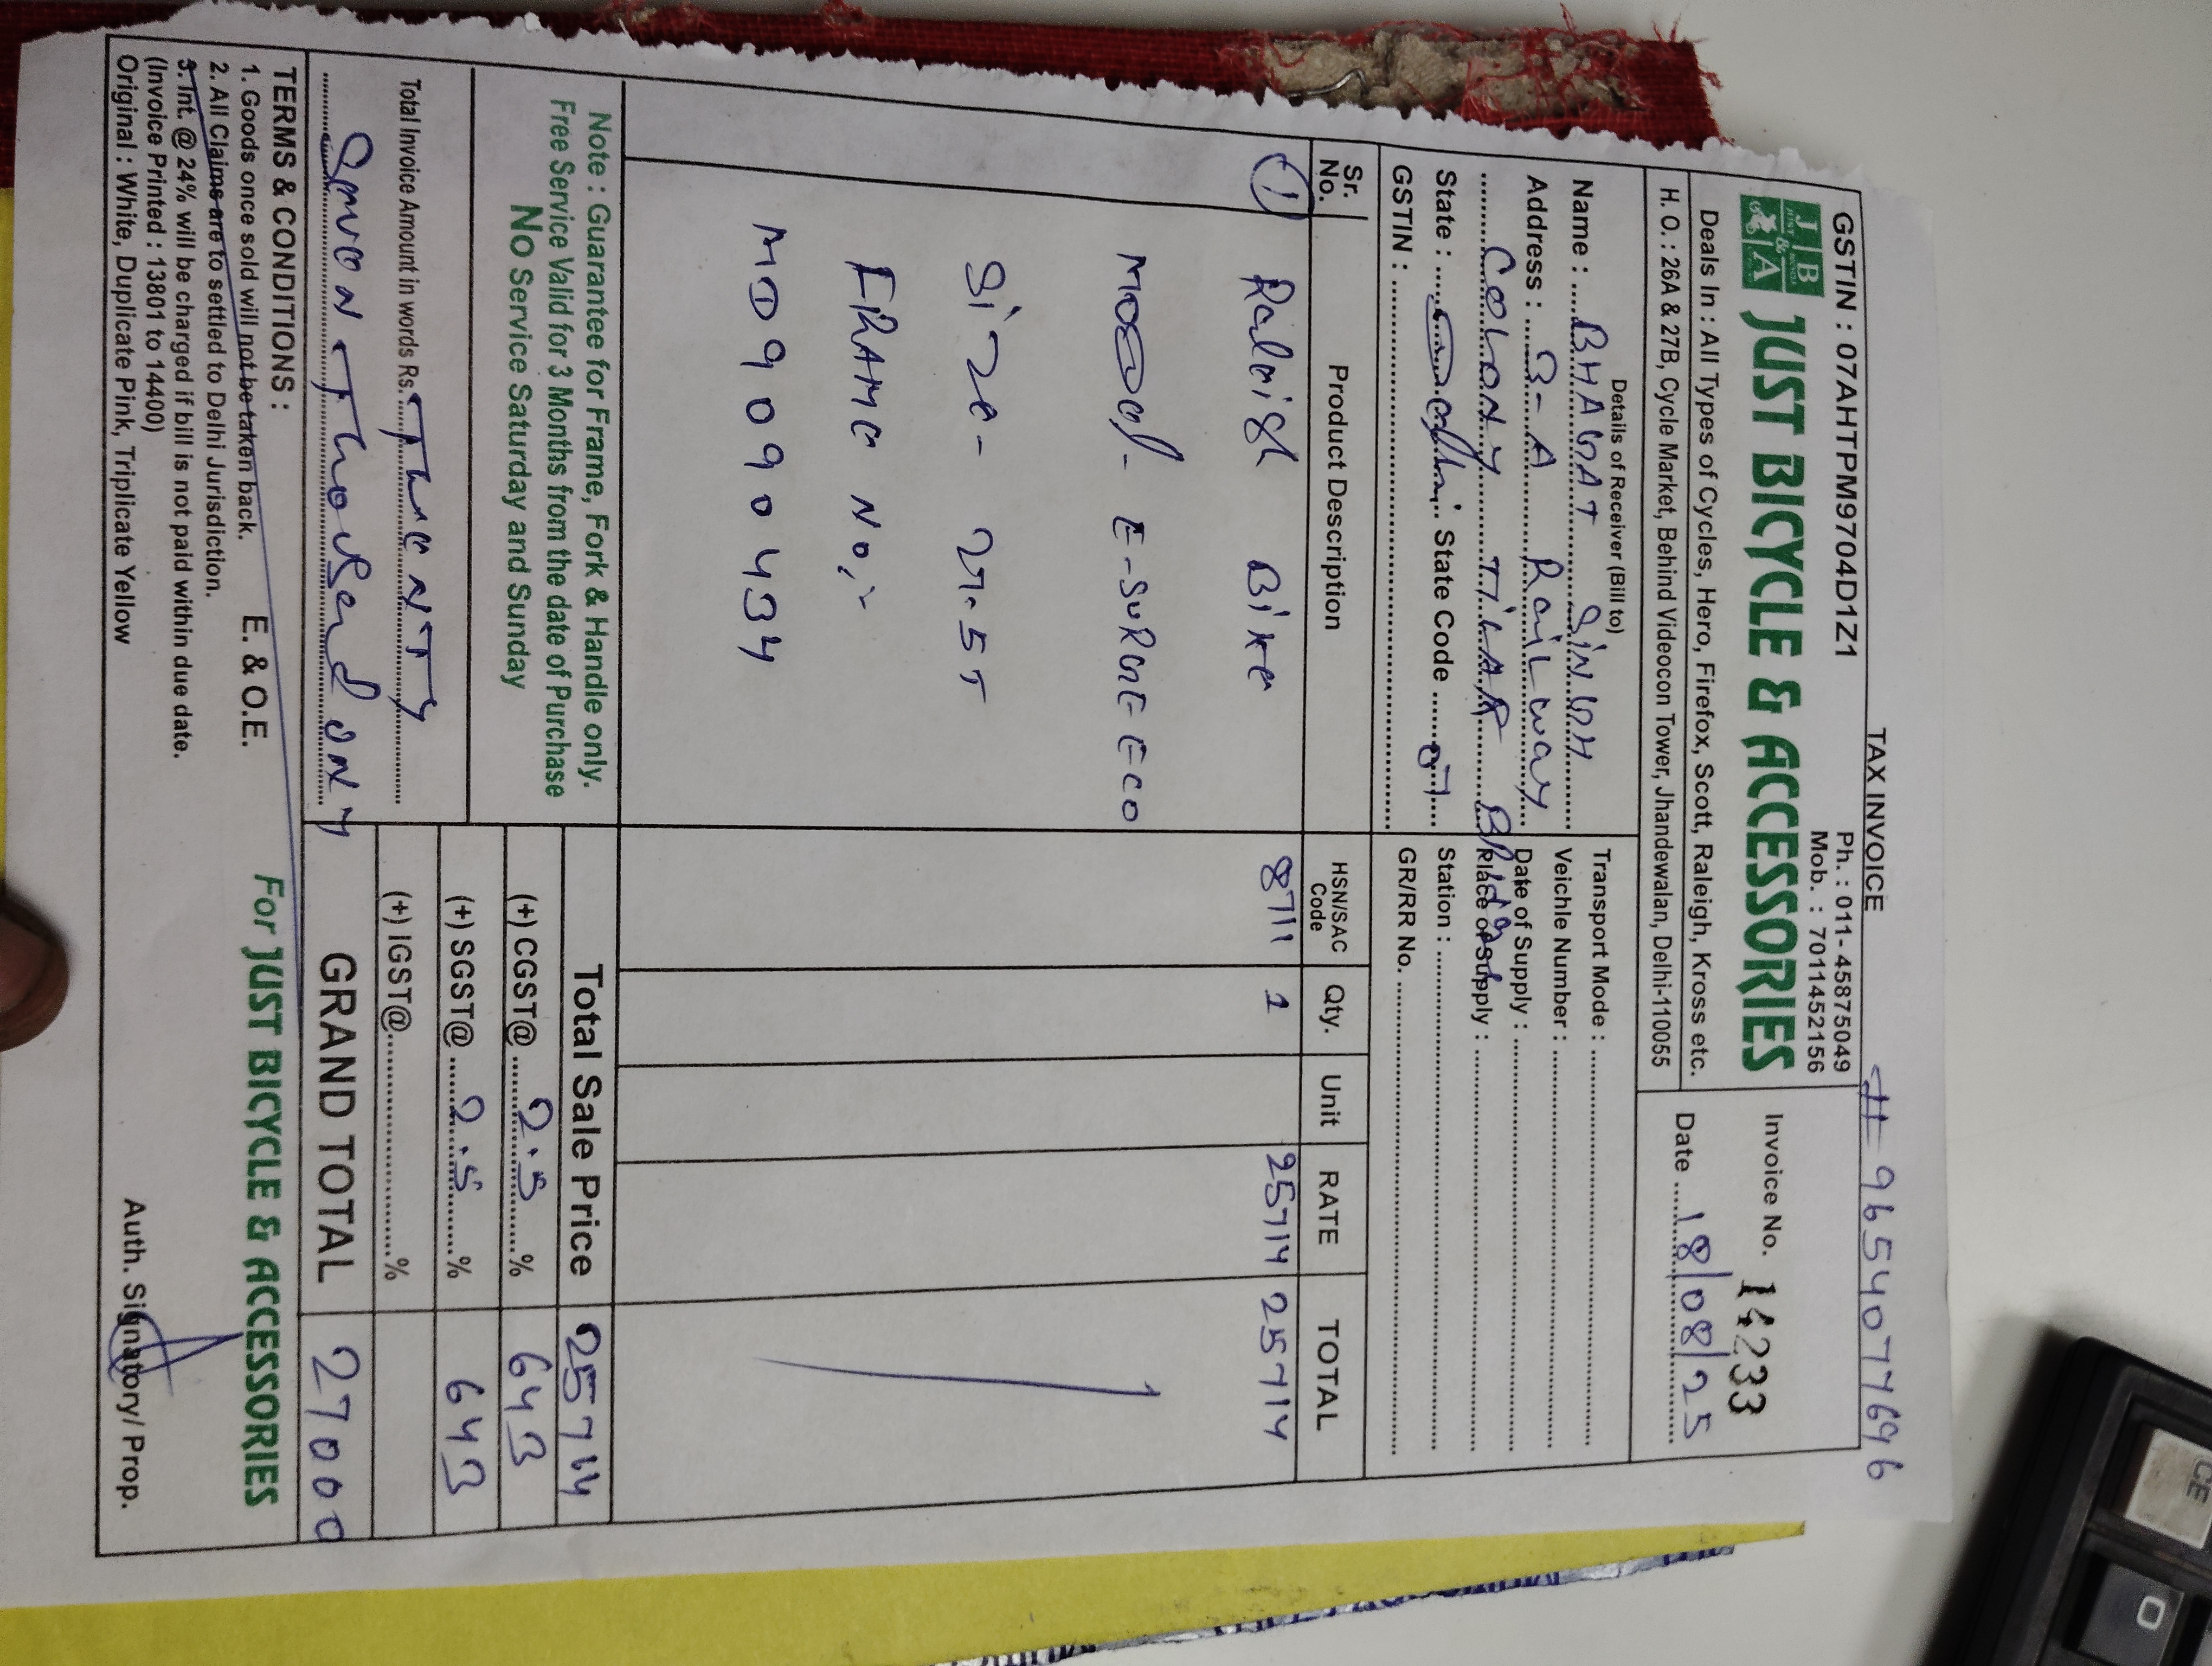 TAX INVOICE
# 9654077696
GSTIN : 07AHTPM9704D1Z1
Ph. : 011- 45875049
Mob. : 7011452156
JB&A JUST BICYCLE & ACCESSORIES
Invoice No. 14233
Deals In : All Types of Cycles, Hero, Firefox, Scott, Raleigh, Kross etc.
H. O. : 26A & 27B, Cycle Market, Behind Videocon Tower, Jhandewalan, Delhi-110055
Date ..... 18/08/25
Details of Receiver (Bill to)
Name : .... BHAGAT SINGH
Address : .... 3-A Railway
COLONY TILAK Bridge
State : .... Delhi State Code ..... 07
GSTIN : ....
Transport Mode : ....
Veichle Number : ....
Date of Supply : ....
Place of Supply : ....
Station : ....
GR/RR No. ....
Sr. No. Product Description HSN/SAC Code Qty. Unit RATE TOTAL
1 Raleigh Bike 8711 1 25714 25714
Model- E-SURGE ECO
Size- 27.5T
FRAME NO:-
MD9090434
Note : Guarantee for Frame, Fork & Handle only.
Free Service Valid for 3 Months from the date of Purchase
NO Service Saturday and Sunday
Total Sale Price 25714
(+) CGST@ .... 2.5 .... % 643
(+) SGST@ .... 2.5 .... % 643
(+) IGST@ .... %
Total Invoice Amount in words Rs. TwenTy
Seven Thousend only
GRAND TOTAL 27000
TERMS & CONDITIONS :
1. Goods once sold will not be taken back.
2. All Claims are to settled to Delhi Jurisdiction.
3. Int. @ 24% will be charged if bill is not paid within due date.
(Invoice Printed : 13801 to 14400)
Original : White, Duplicate Pink, Triplicate Yellow
E. & O.E.
For JUST BICYCLE & ACCESSORIES
Auth. Signatory/ Prop.
CE
0